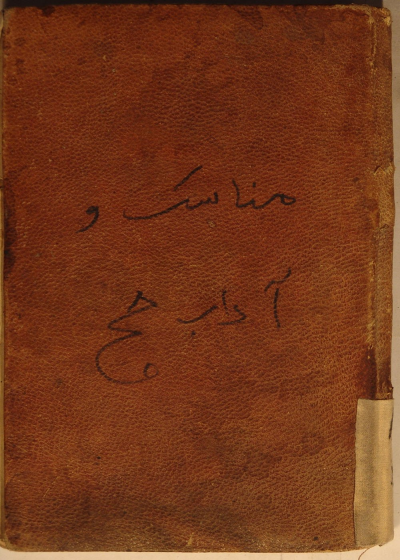 مناسک و
آداب حج